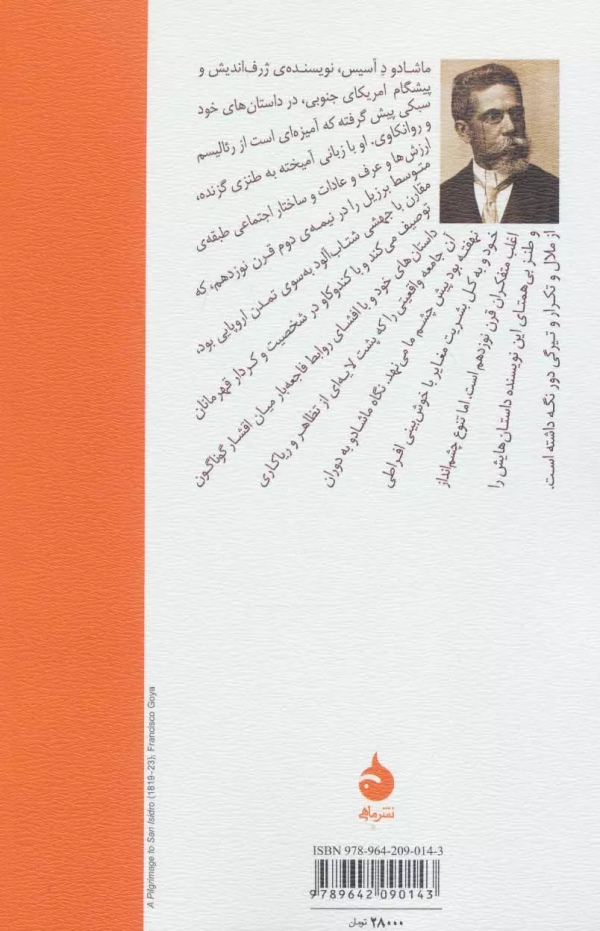 ماشادو دِ آسیس، نویسنده‌ی ژرف‌اندیش و
پیشگام امریکای جنوبی، در داستان‌های خود
سبکی پیش گرفته که آمیزه‌ای است از رئالیسم
و روانکاوی. او با زبانی آمیخته به طنزی گزنده،
ارزش‌ها و عرف و عادات و ساختار اجتماعی طبقه‌ی
متوسط برزیل را در نیمه‌ی دوم قرن نوزدهم، که
مقارن با جهشی شتاب‌آلود به‌سوی تمدن اروپایی بود،
توصیف می‌کند و با کندوکاو در شخصیت و کردار قهرمانان
داستان‌های خود و با افشای روابط فاجعه‌بار میان اقشار گوناگون
آن جامعه واقعیتی را که پشت لایه‌ای از تظاهر و ریاکاری
نهفته بود پیش چشم ما می‌نهد. نگاه ماشادو به دوران
خود و به کل بشریت مغایر با خوش‌بینی افراطی
اغلب متفکران قرن نوزدهم است، اما تنوع چشم‌انداز
و طنز بی‌همتای این نویسنده داستان‌هایش را
از ملال و تکرار و تیرگی دور نگه داشته است.
A Pilgrimage to San Isidro (1819-23), Francisco Goya
نشر ماهی
ISBN 978-964-209-014-3
9789642090143
۲۸۰۰۰ تومان